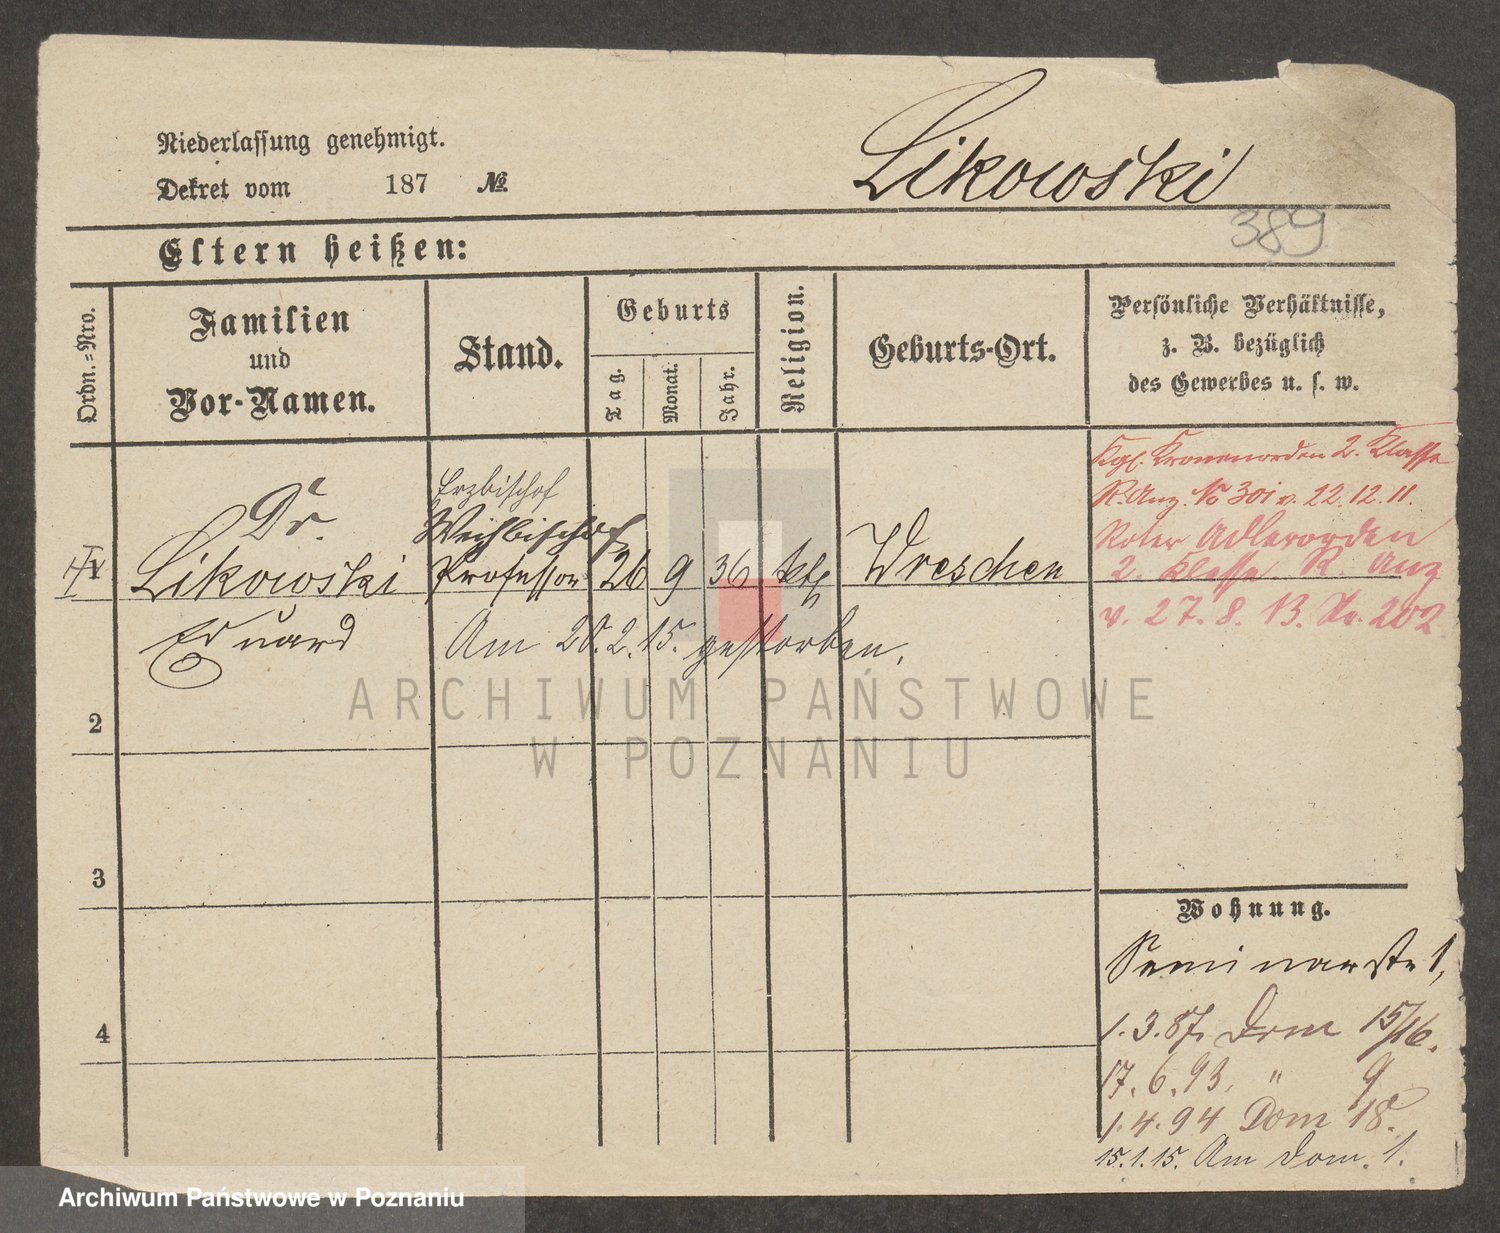 Niederlassung genehmigt.
Dekret vom 187 №
Likowski
389
Eltern heißen:
Ordn.=Nro.
Familien
und
Vor-Namen.
Stand.
Geburts
Tag.
Monat.
Jahr.
Religion.
Geburts-Ort.
Persönliche Verhältnisse,
z. B. bezüglich
des Gewerbes u. s. w.
Dr.
Likowski
Eduard
Erzbischof
Weihbischof
Professor
26 9 36 ktl.
Wreschen
Am 20.2.15. gestorben.
Kgl. Kronenorden 2. Klasse
R. Anz. No 301 v. 22.12.11.
Roter Adlerorden
2. Klasse. R. Anz
v. 27. 8. 13. Nr. 202
2
3
4
Wohnung.
Seminarstr 1,
1.3.87. Dom 15/16.
17.6.93. " 9
1.4.94 Dom 18.
15.1.15. Am Dom. 1.
ARCHIWUM PAŃSTWOWE
W POZNANIU
Archiwum Państwowe w Poznaniu